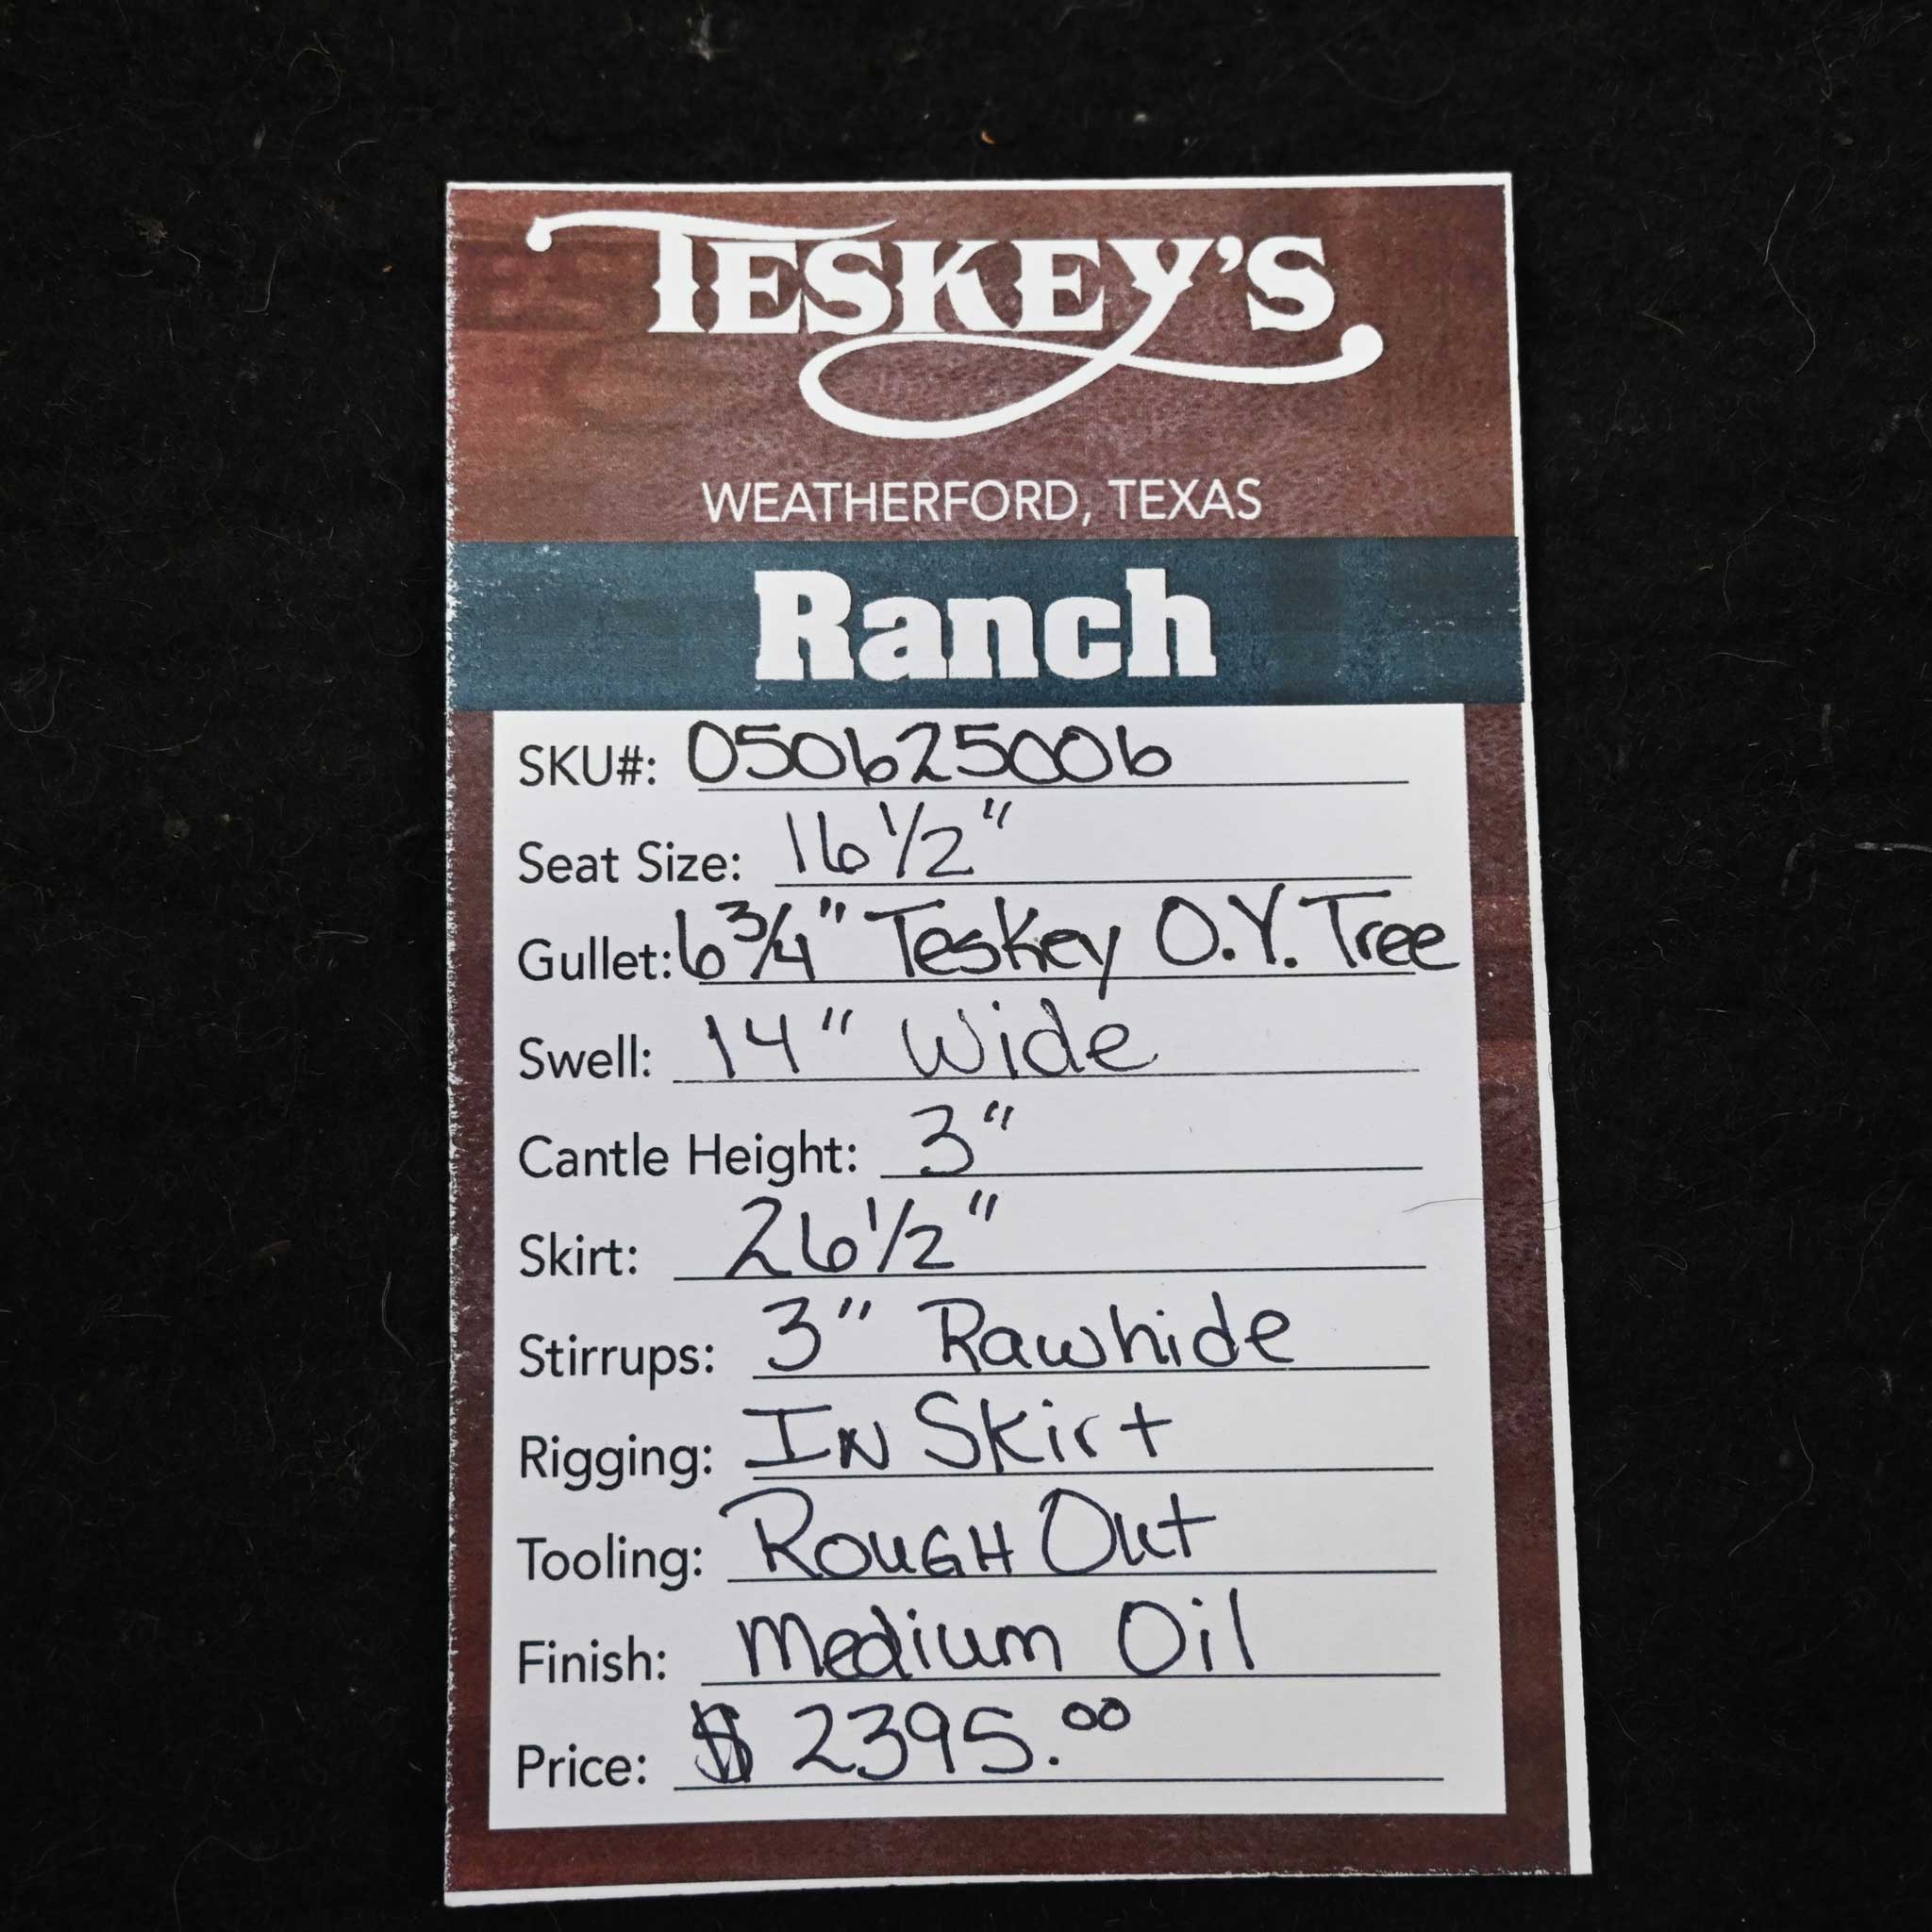 TESKEY'S
WEATHERFORD, TEXAS
Ranch
SKU#: 050625006
Seat Size: 16 1/2"
Gullet: 6 3/4" Teskey O.Y. Tree
Swell: 14" Wide
Cantle Height: 3"
Skirt: 26 1/2"
Stirrups: 3" Rawhide
Rigging: IN Skirt
Tooling: ROUGH Out
Finish: Medium Oil
Price: $ 2395.00